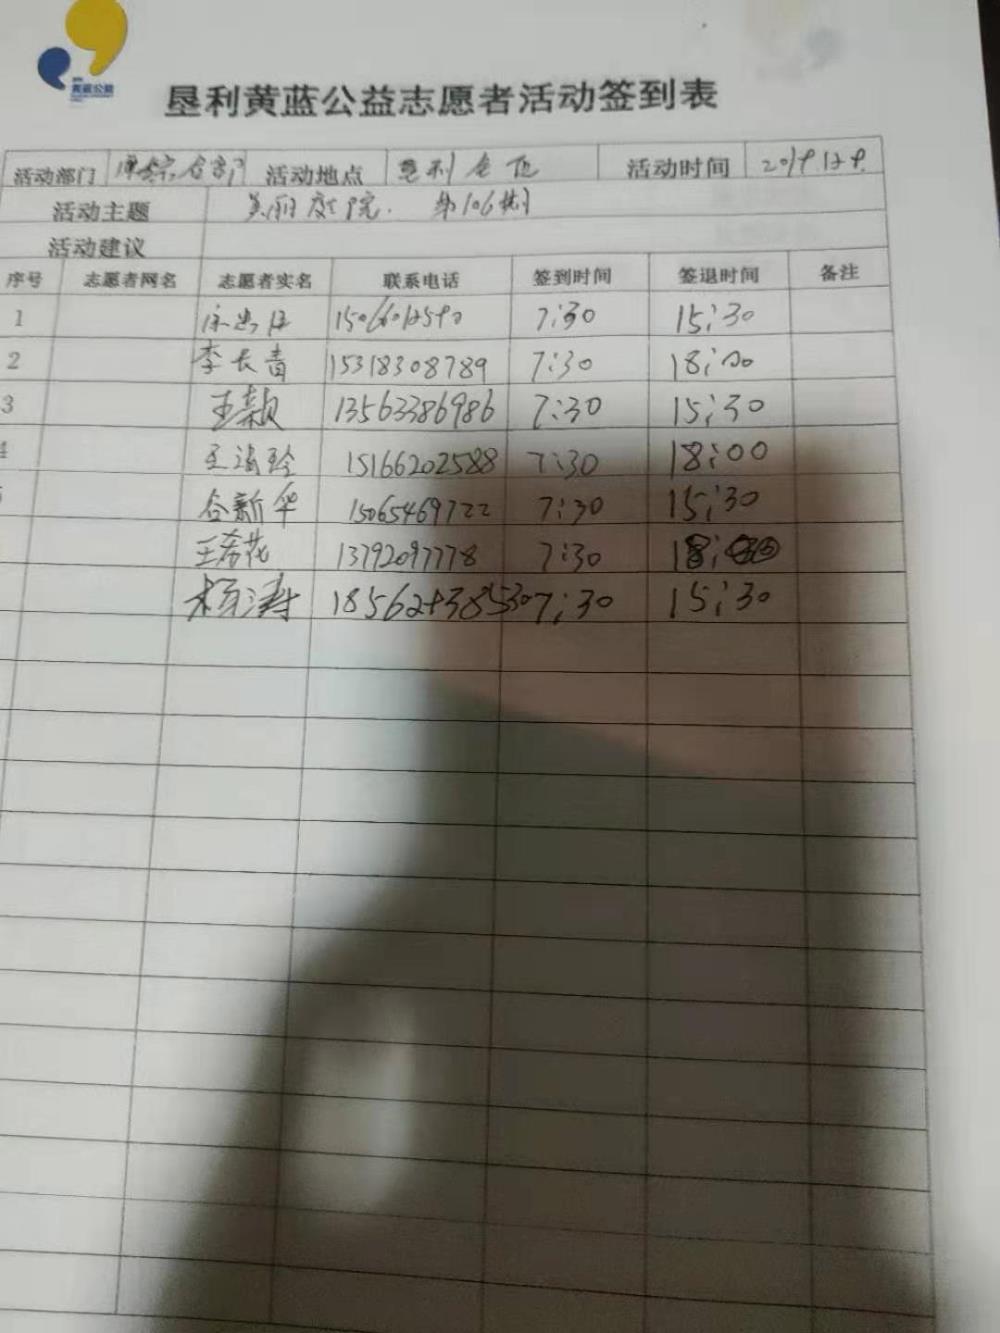 黄蓝公益
垦利黄蓝公益志愿者活动签到表
活动部门 综合部 活动地点 垦利全区 活动时间 2019.12.9.
活动主题 美丽庭院. 第106期
活动建议
序号 志愿者网名 志愿者实名 联系电话 签到时间 签退时间 备注
1 7:30 15:30
2 李长青 15318308789 7:30 18:00
3 王颖 13563386986 7:30 15:30
4 15166202588 7:30 18:00
谷新华 15065469722 7:30 15:30
王希花 13792097778 7:30
杨涛 7:30 15:30